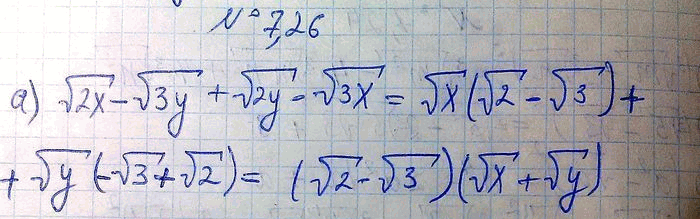 № 7,26
а) √2x - √3y + √2y - √3x = √x (√2 - √3) +
+ √y (-√3 + √2) = (√2 - √3)(√x + √y)